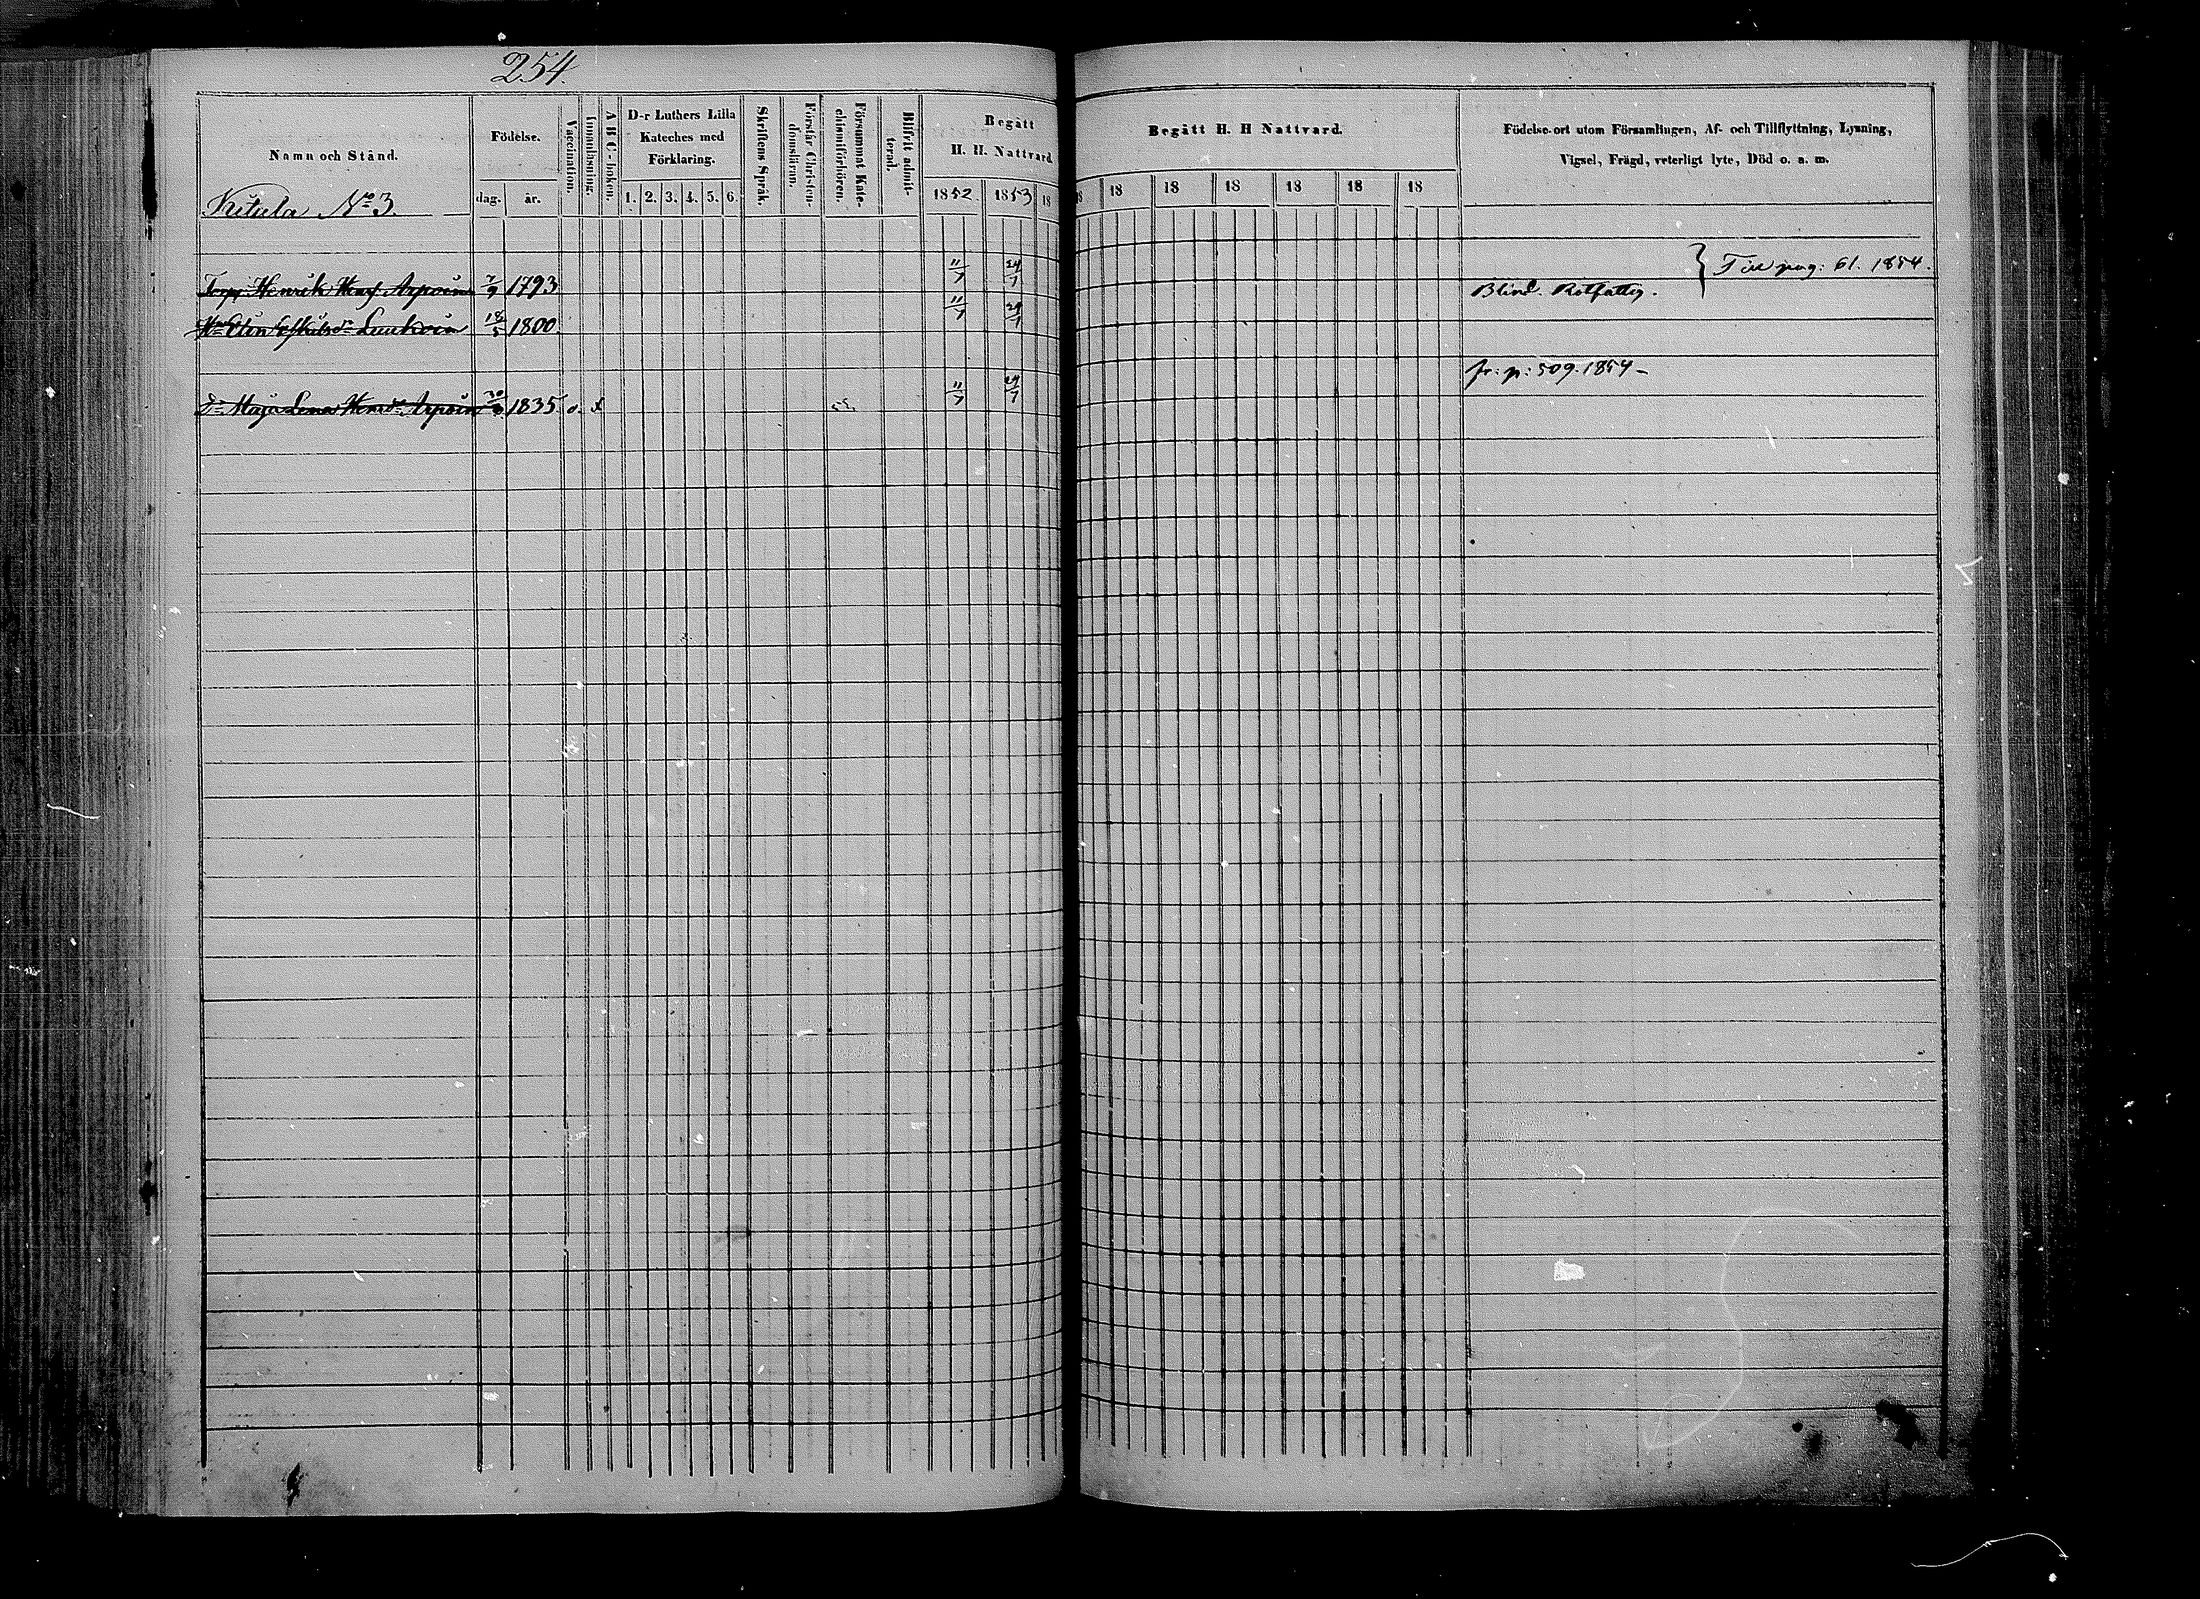 254.
Namn och Stånd.
Födelse.
dag. år.
Vaccination.
Innanläsning.
A B C-boken.
D-r Luthers Lilla
Kateches med
Förklaring.
1. 2. 3. 4. 5. 6.
Skriftens Språk.
Förstår Christen-
domsläran.
Försummat Kate-
chismiförhören.
Blifvit admit-
terad.
Begått
H. H. Nattvard
1852. 1853 18
Begått H. H Nattvard.
18 18 18 18 18 18 18
Födelse-ort utom Församlingen, Af- och Tillflyttning, Lysning,
Vigsel, Frägd, veterligt lyte, Död o. a. m.
No 3.
Henrik 7/9 1793 11/7 24/7 Blind.
pag: 61. 1854.
Elin 18/5 1800 11/7 24/7
fr: p: 509. 1854
Dr Maja Lena 1835 11/7 24/7